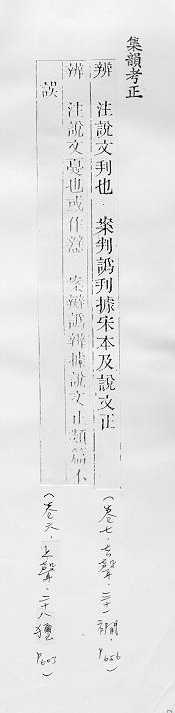 集韻考正
辨 注說文判也 案判譌刊據宋本及說文正
辨 注說文憂也或作 案辯譌辨據說文正類篇不
誤
(卷七.去聲.三十一襇.P656)
(卷六.上聲.二十八獮 P603)